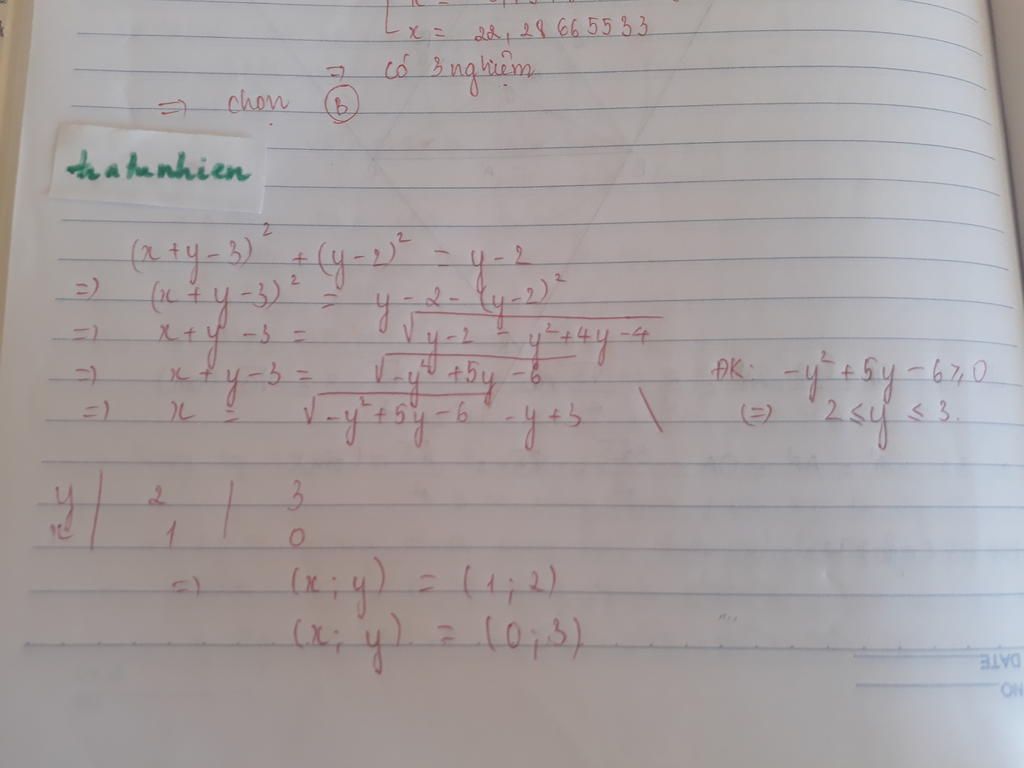 x = 22,28665533
=> có 3 nghiệm
=> chọn B
hatunhien
(x+y-3)² + (y-2)² = y-2
=> (x+y-3)² = y-2-(y-2)²
=> x+y-3 = √y-2-y²+4y-4
=> x+y-3 = √-y²+5y-6 ĐK: -y²+5y-6≥0
=> x = √-y²+5y-6 -y+3 \ (=) 2≤y≤3.
y | 2 | 3
x | 1 | 0
=> (x;y) = (1;2)
(x;y) = (0;3)
DATE
NO